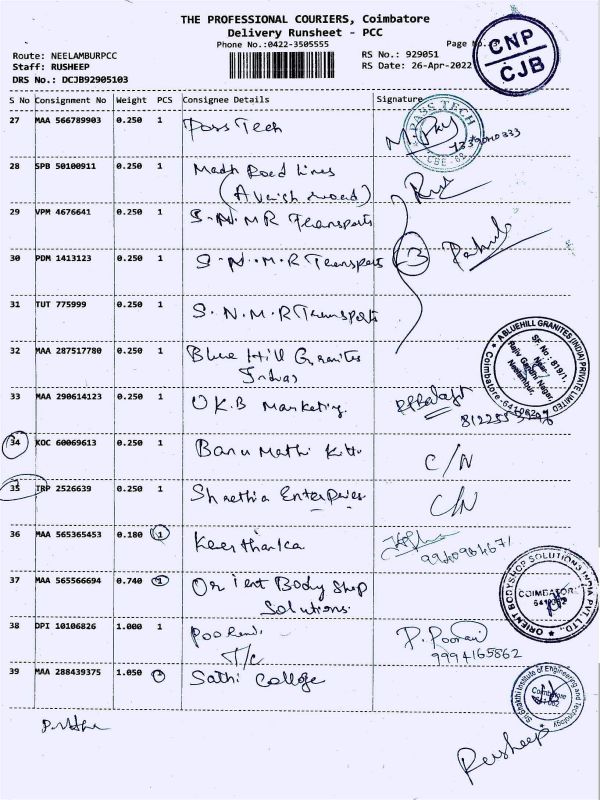 THE PROFESSIONAL COURIERS, Coimbatore
Delivery Runsheet - PCC
Phone No.:0422-3505555
Page No.:3
Route: NEELAMBURPCC
RS No.: 929051
Staff: RUSHEEP
RS Date: 26-Apr-2022
DRS No.: DCJB92905103
CNP
CJB
S No Consignment No Weight PCS Consignee Details Signature
27 MAA 566789903 0.250 1 Pass Tech
PASS TECH
CBE-62
28 SPB 50100911 0.250 1 Madh Road Lines
29 VPM 4676641 0.250 1 S.N.M.R Transports
30 PDM 1413123 0.250 1 S.N.M.R Transports
31 TUT 775999 0.250 1 S.N.M.R Transports
32 MAA 287517780 0.250 1 Blue Hill Granites
India
A BLUEHILL GRANITES (INDIA) PRIVATE LIMITED
SF. No : 819/1,
Rajiv Gandhi Nagar,
Neelambur,
Coimbatore-641062
33 MAA 290614123 0.250 1 O.K.B Marketing
34 KOC 60069613 0.250 1 Banu Mathi
C/N
35 TRP 2526639 0.250 1 Enterprises
C/N
36 MAA 565365453 0.180 1 Keerthanka
37 MAA 565566694 0.740 1 Orient Body Shop
Solutions
ORIENT BODYSHOP SOLUTIONS INDIA PVT. LTD.,
COIMBATORE
641062
38 DPI 10106826 1.000 1
T/C
P. Poorani
9994165862
39 MAA 288439375 1.050 Sathi College
Sri Shakthi Institute of Engineering and Technology
Coimbatore
Rusheep